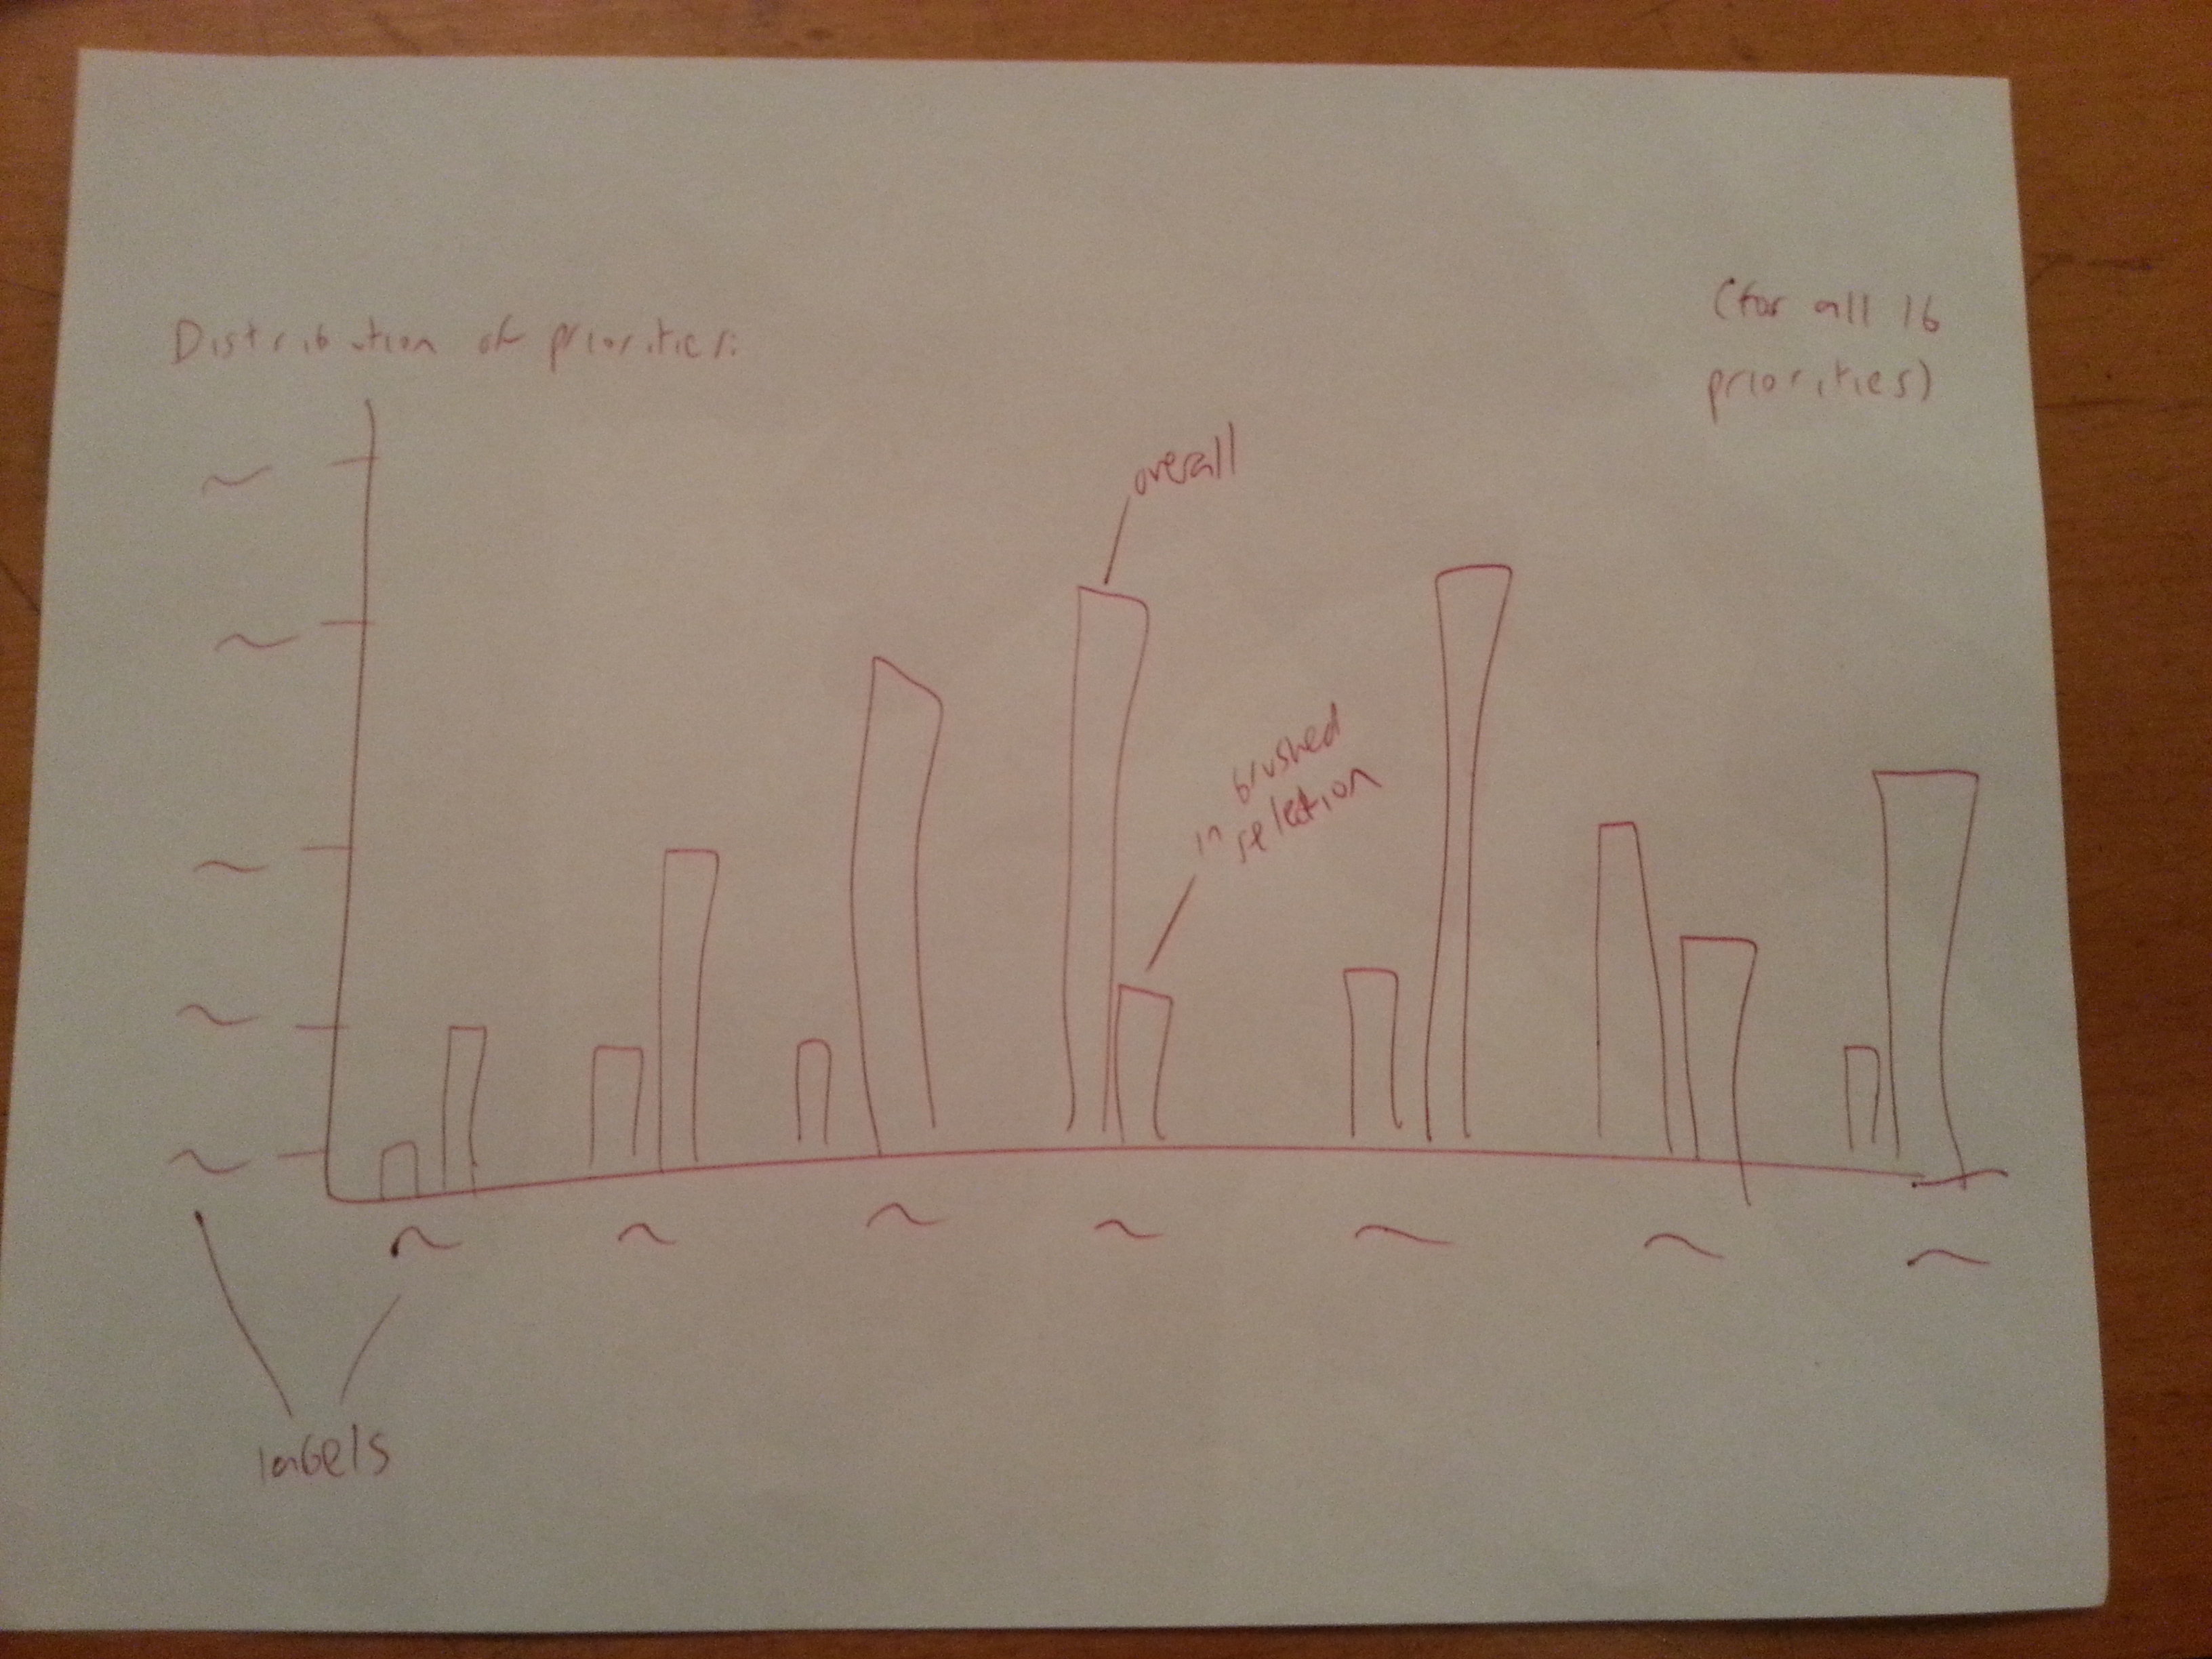 Distribution of priorities:
(for all 16
priorities)
overall
in brushed
selection
labels